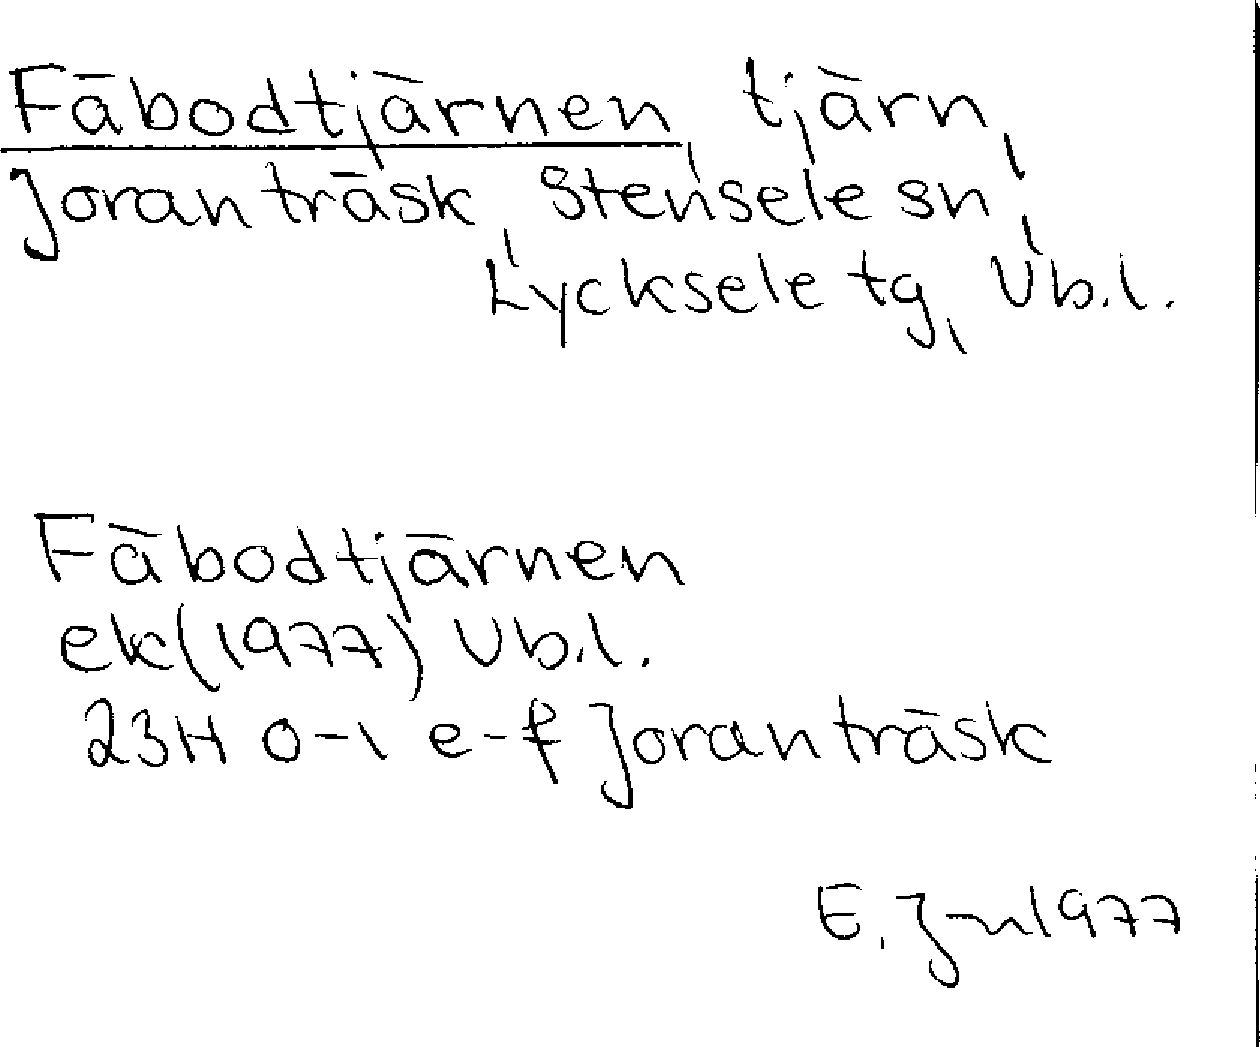 Fäbodtjärnen, tjärn,
Joranträsk, Stensele sn,
Lycksele tg, Vb.l.
Fäbodtjärnen
ek(1977) Vb.l.
23H 0-1 e-f Joranträsk
E. 1977